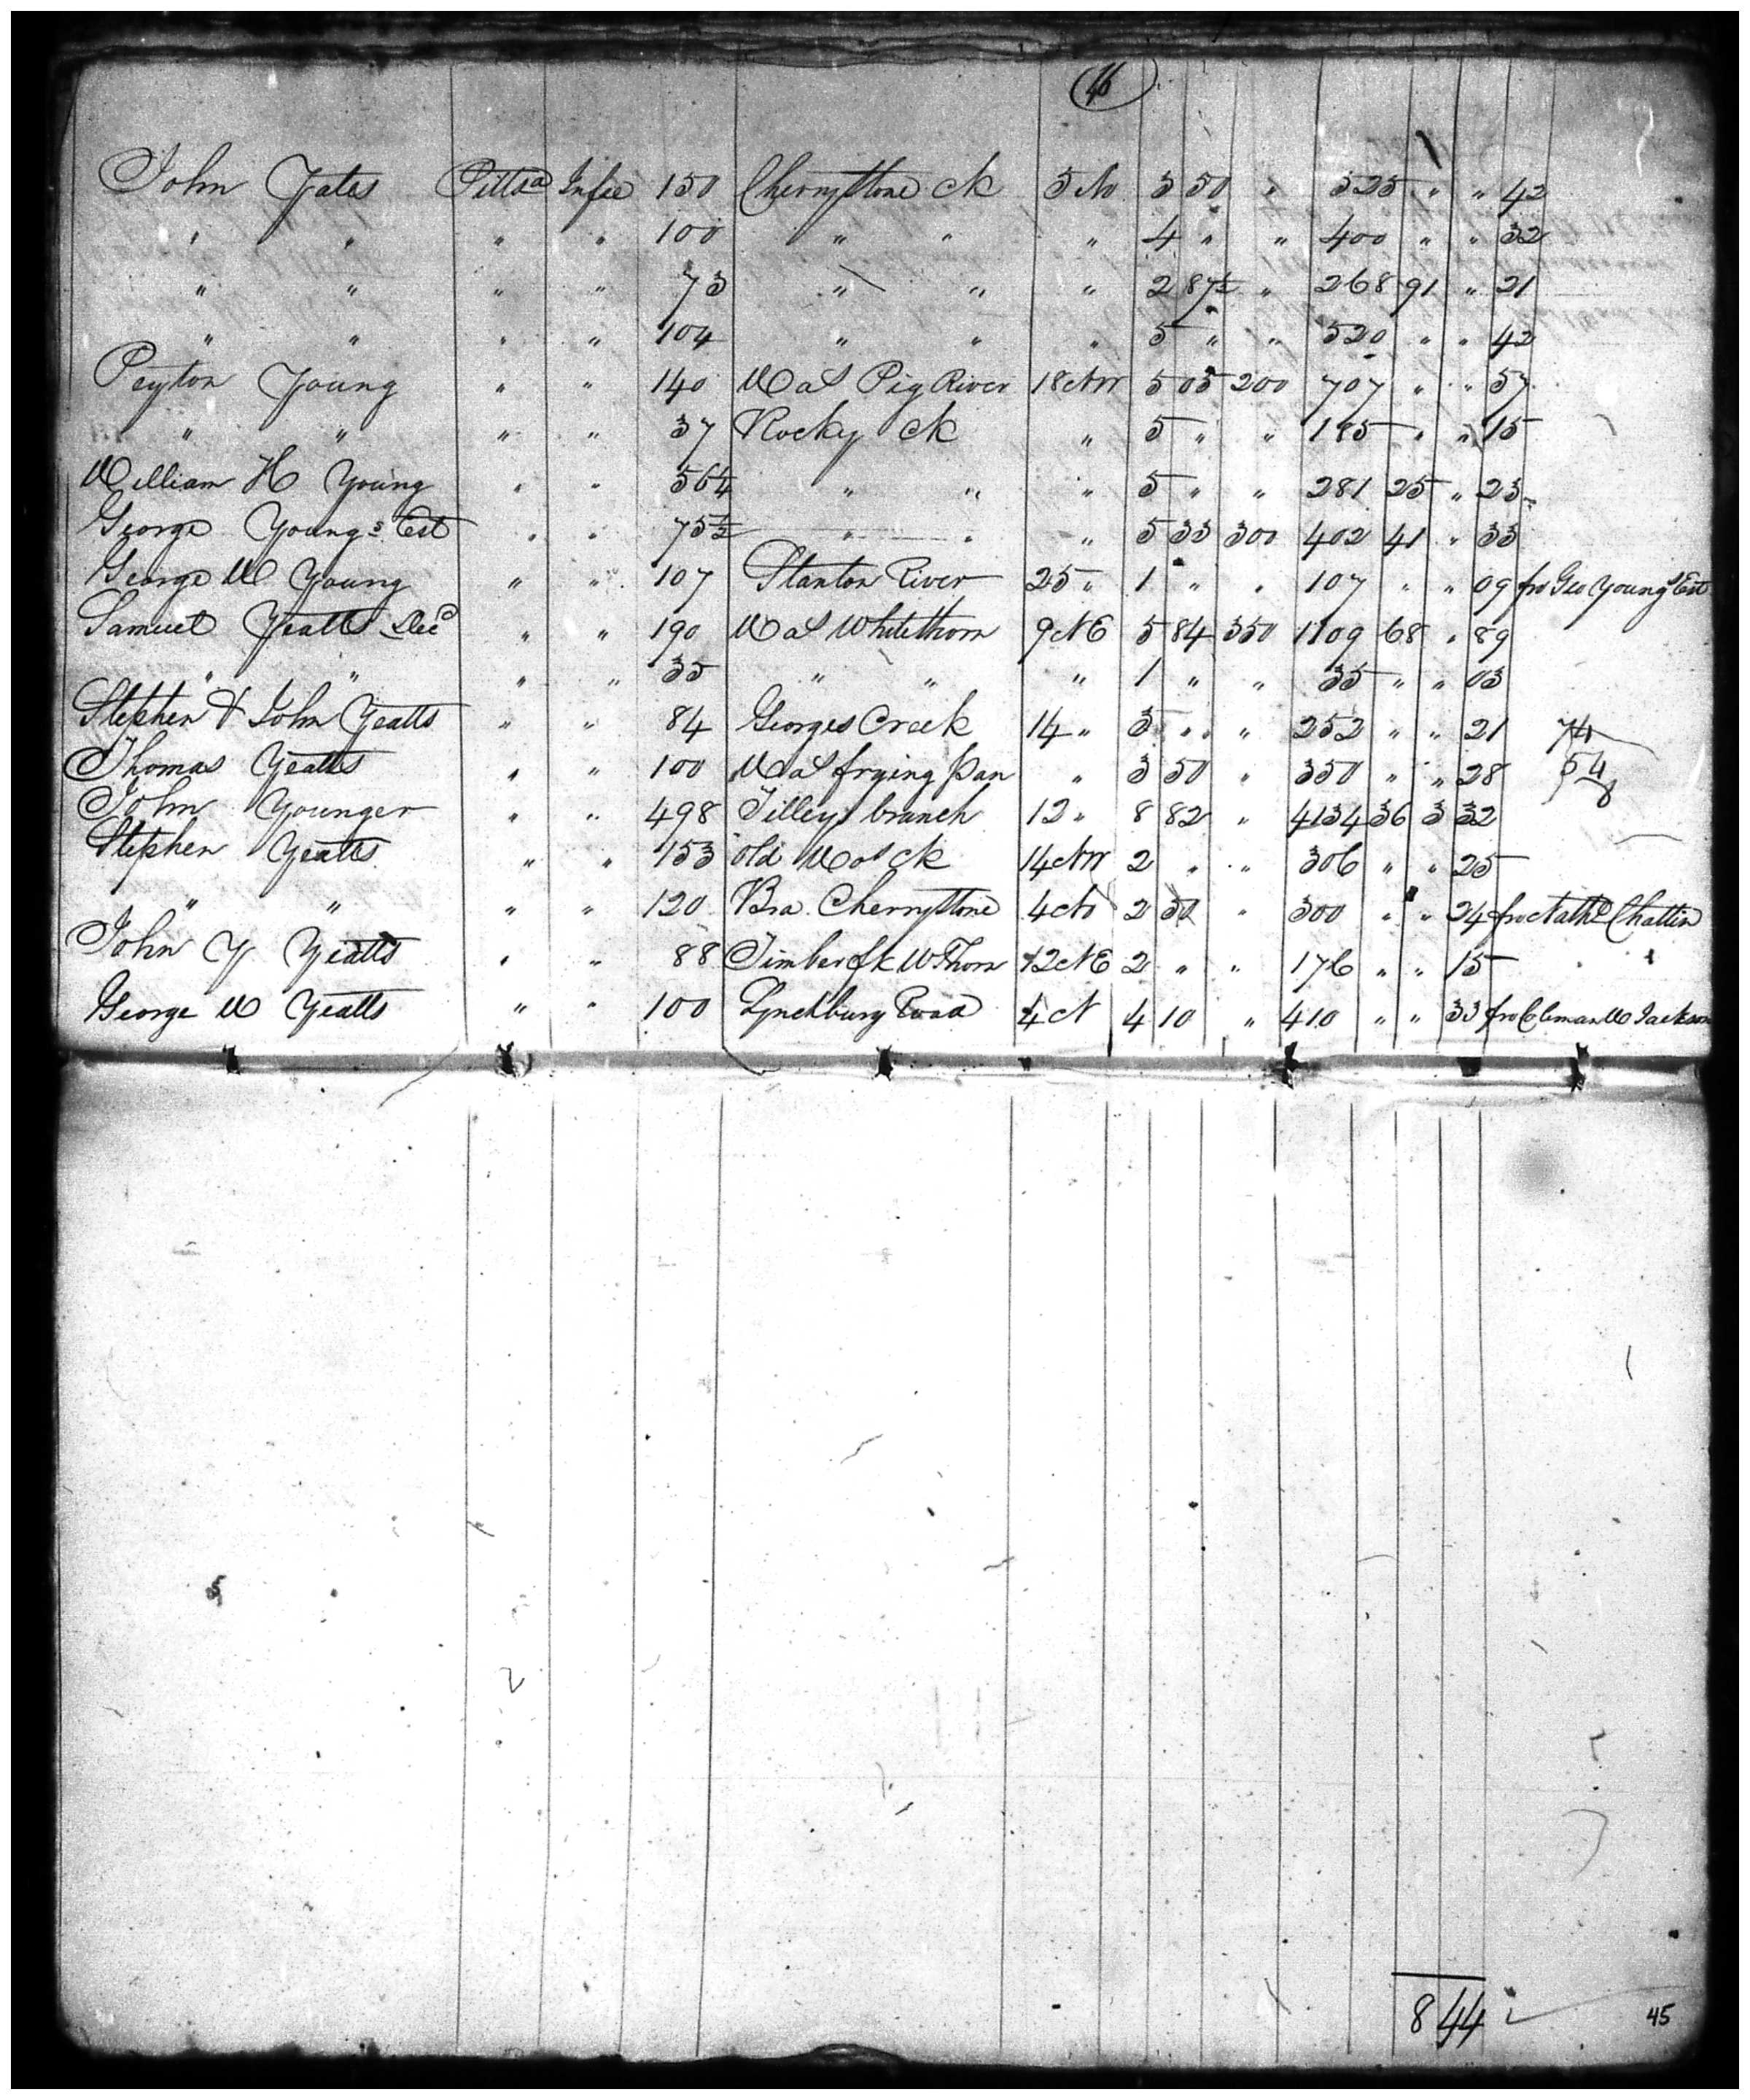 46
John Yates Pittsa Infee 150 Cherrystone ck 5 No 3 50 " 525 " " 42
" " " " 100 " " " 4 " " 400 " " 32
" " " " 73 " " " 2 87½ " 268 91 " 21
" " " " 104 " " " 5 " " 520 " " 42
Peyton Young " " 140 Was Pig River 18 NW 5 05 200 707 " " 57
" " " " 37 Rocky ck " 5 " " 185 " " 15
William H Young " " 56¼ " " " 5 " " 281 25 " 23
George Youngs Est " " 75½ " " " 5 33 300 402 41 " 33
George W Young " " 107 Stanton River 25 " 1 " " 107 " " 09 fro Geo Youngs Est
Samuel Yeatts Decd " " 190 Was Whitethorn 9 NE 5 84 350 1109 68 " 89
" " " " 35 " " " 1 " " 35 " " 03
Stephen & John Yeatts " " 84 Georges Creek 14 " 3 " " 252 " " 21
Thomas Yeatts " " 100 Was frying pan " 3 50 " 350 " " 28
John Younger " " 498 Tilleys branch 12 " 8 82 " 4134 36 3 32
Stephen Yeatts " " 153 old Was ck 14 NW 2 " " 306 " " 25
" " " " 120 Bra Cherrystone 4 No 2 50 " 300 " " 24 fro Nathl Chattin
John Y Yeatts " " 88 Timber fk W Thorn 12 NE 2 " " 176 " " 15
George W Yeatts " " 100 Lynchburg Road 4 N 4 10 " 410 " " 33 fro Coleman W Jackson
8 44
45